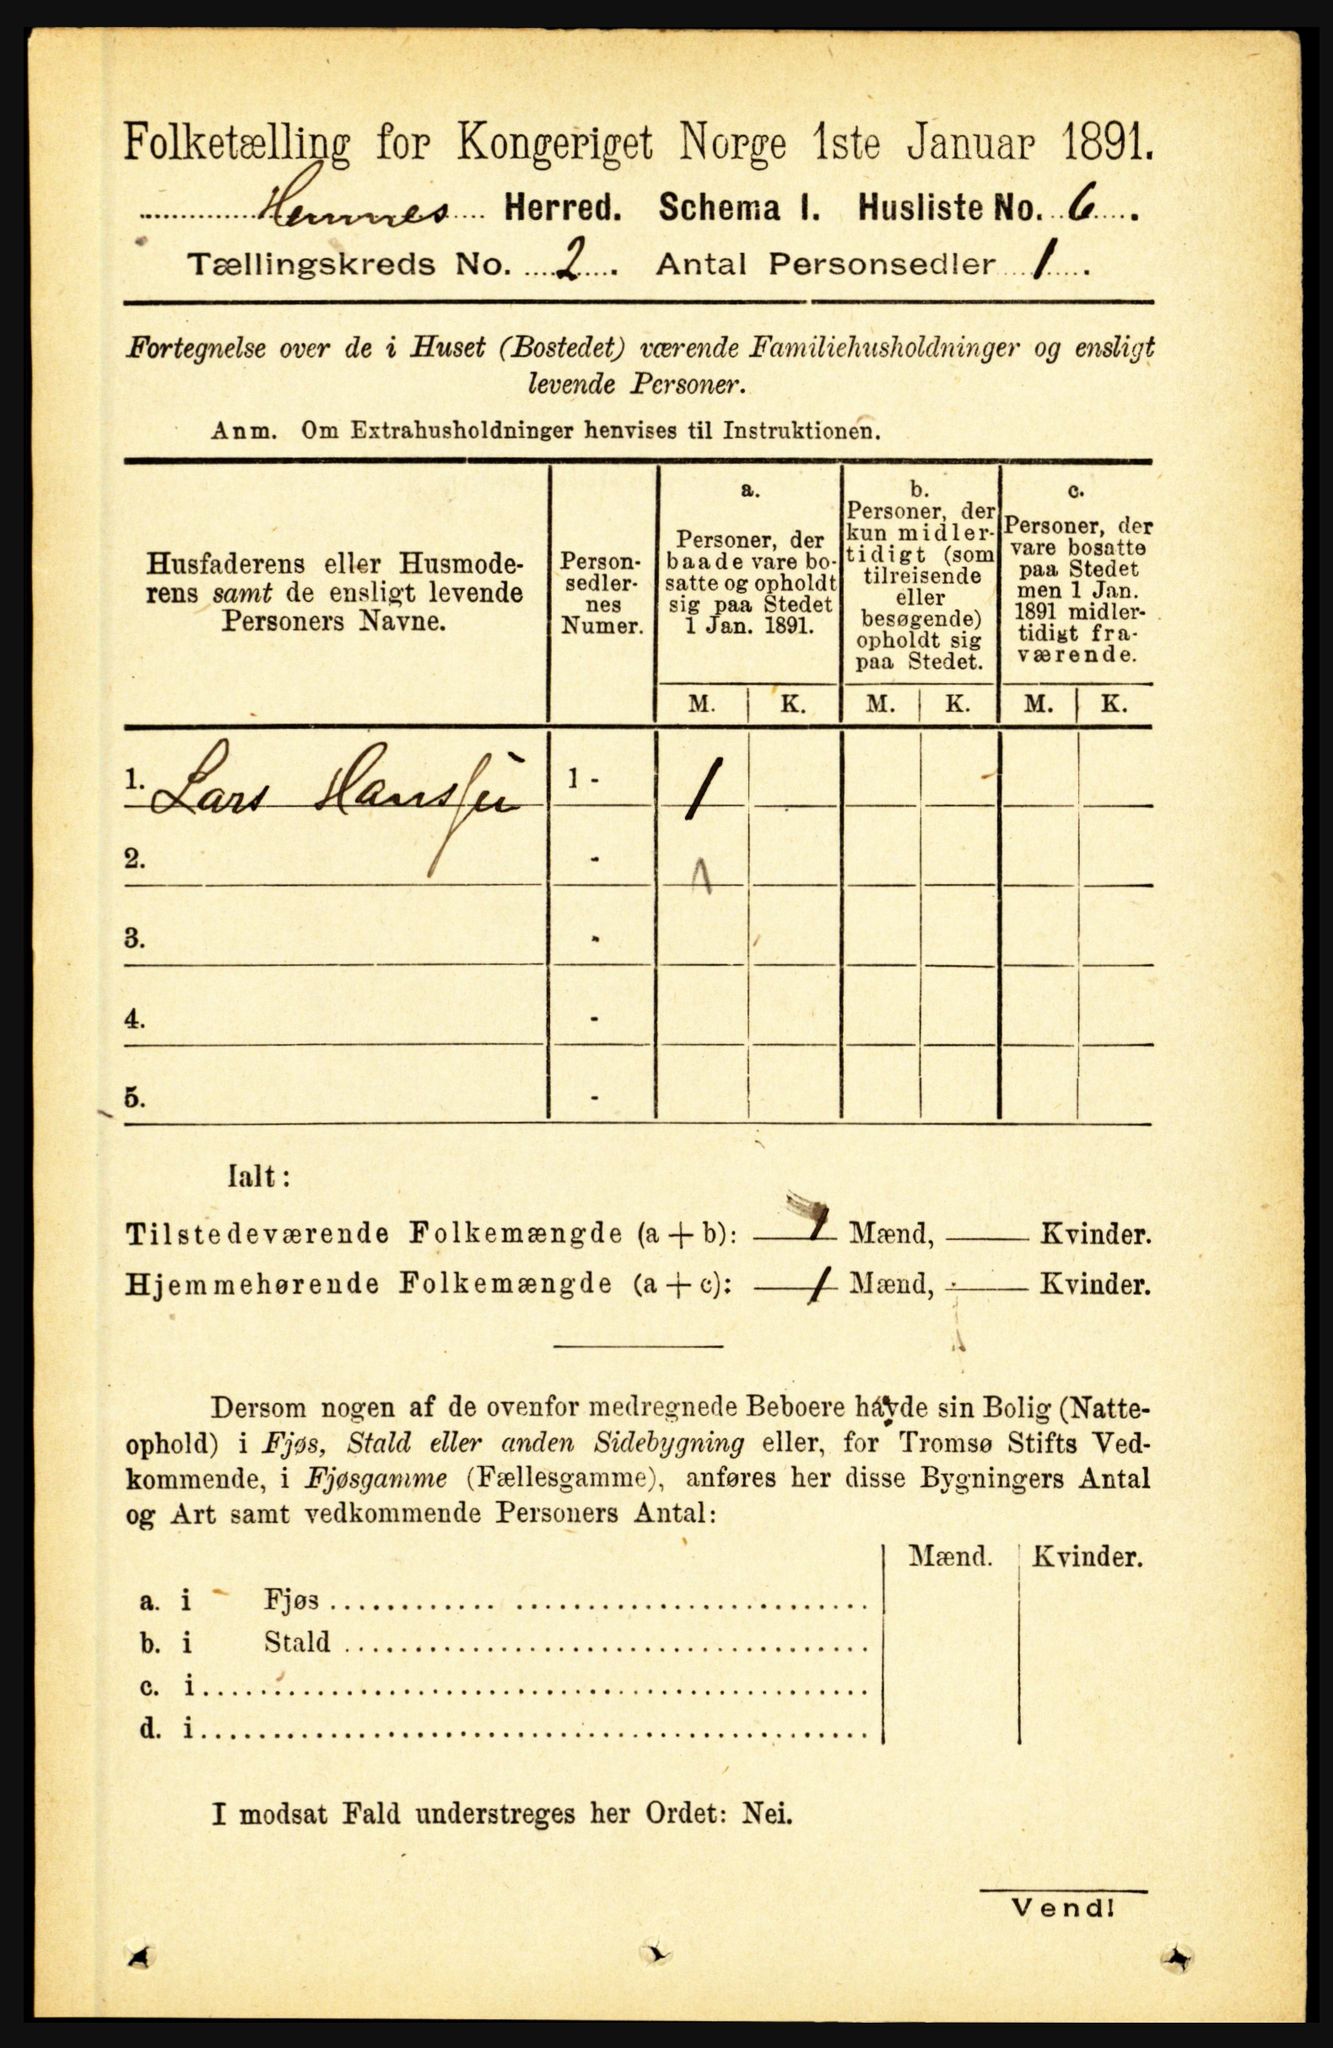 Folketælling for Kongeriget Norge 1ste Januar 1891.
Hemnes Herred. Schema I. Husliste No. 6.
Tællingskreds No. 2. Antal Personsedler 1.
Fortegnelse over de i Huset (Bostedet) værende Familiehusholdninger og ensligt
levende Personer.
Anm. Om Extrahusholdninger henvises til Instruktionen.
Husfaderens eller Husmode-
rens samt de ensligt levende
Personers Navne.
Person-
sedler-
nes
Numer.
a.
Personer, der
baade vare bo-
satte og opholdt
sig paa Stedet
1 Jan. 1891.
b.
Personer, der
kun midler-
tidigt (som
tilreisende
eller
besøgende)
opholdt sig
paa Stedet.
c.
Personer, der
vare bosatte
paa Stedet
men 1 Jan.
1891 midler-
tidigt fra-
værende.
M. K. M. K. M. K.
1. Lars Hanssen 1 - 1
2. - 1
3. -
4. -
5. -
Ialt:
Tilstedeværende Folkemængde (a + b): 1 Mænd, Kvinder.
Hjemmehørende Folkemængde (a + c): 1 Mænd, Kvinder.
Dersom nogen af de ovenfor medregnede Beboere havde sin Bolig (Natte-
ophold) i Fjøs, Stald eller anden Sidebygning eller, for Tromsø Stifts Ved-
kommende, i Fjøsgamme (Fællesgamme), anføres her disse Bygningers Antal
og Art samt vedkommende Personers Antal:
Mænd. Kvinder.
a. i Fjøs
b. i Stald
c. i
d. i
I modsat Fald understreges her Ordet: Nei.
Vend!